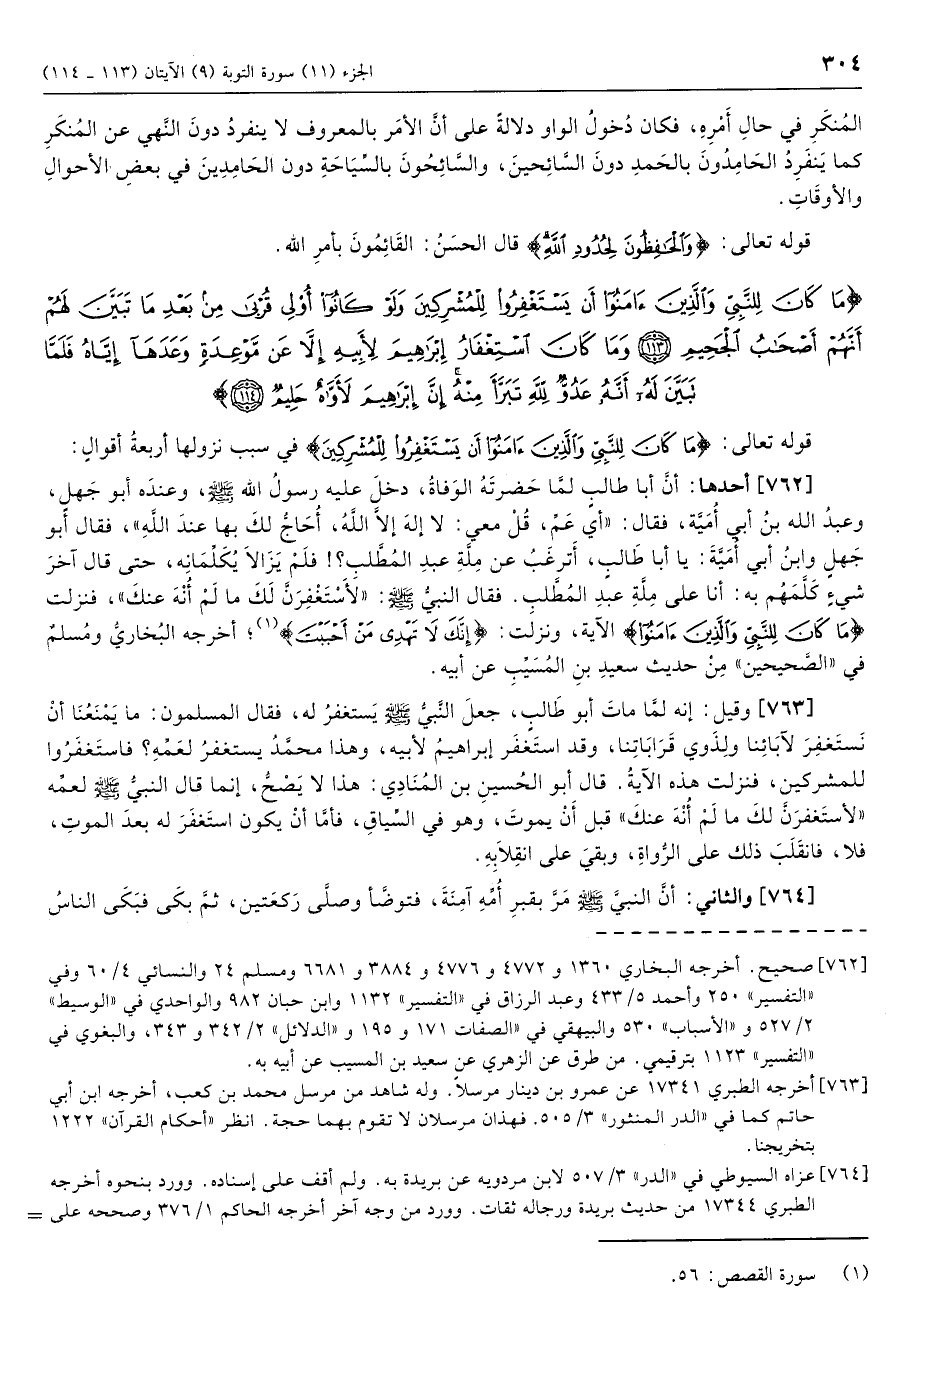 ٣٠٤
الجزء (١١) سورة التوبة (٩) الآيتان (١١٣ ـ ١١٤)
المُنكَرِ في حالِ أَمْرِهِ، فكان دُخولُ الواو دلالةً على أنَّ الأمَر بالمعروف لا ينفردُ دونَ النَّهي عن المُنكَرِ
كما يَنفَرِدُ الحَامِدُونَ بالحَمدِ دونَ السَّائحينَ، والسَّائِحُونَ بالسِّيَاحَةِ دون الحَامِدِينَ في بعضِ الأحوالِ
والأوقَاتِ.
قوله تعالى: ﴿وَٱلْحَٰفِظُونَ لِحُدُودِ ٱللَّهِ﴾ قال الحسَنُ: القَائِمُونَ بأمرِ الله.
﴿مَا كَانَ لِلنَّبِيِّ وَٱلَّذِينَ ءَامَنُوٓا۟ أَن يَسْتَغْفِرُوا۟ لِلْمُشْرِكِينَ وَلَوْ كَانُوٓا۟ أُو۟لِى قُرْبَىٰ مِنۢ بَعْدِ مَا تَبَيَّنَ لَهُمْ
أَنَّهُمْ أَصْحَٰبُ ٱلْجَحِيمِ ﴿١١٣﴾ وَمَا كَانَ ٱسْتِغْفَارُ إِبْرَٰهِيمَ لِأَبِيهِ إِلَّا عَن مَّوْعِدَةٍ وَعَدَهَآ إِيَّاهُ فَلَمَّا
تَبَيَّنَ لَهُۥٓ أَنَّهُۥ عَدُوٌّ لِّلَّهِ تَبَرَّأَ مِنْهُ ۚ إِنَّ إِبْرَٰهِيمَ لَأَوَّٰهٌ حَلِيمٌ ﴿١١٤﴾﴾
قوله تعالى: ﴿مَا كَانَ لِلنَّبِيِّ وَٱلَّذِينَ ءَامَنُوٓا۟ أَن يَسْتَغْفِرُوا۟ لِلْمُشْرِكِينَ﴾ في سبب نزولها أربعةُ أقوالٍ:
[٧٦٢] أحدها: أنَّ أبا طالبٍ لمَّا حَضرتَهُ الوَفاةُ، دخلَ عليه رسولُ الله ﷺ، وعندَه أبو جَهلٍ،
وعبدُ الله بنُ أبي أُمَيَّة، فقال: «أي عَمِّ، قُلْ معي: لا إلهَ إلاَّ اللَّهُ، أُحَاجُّ لكَ بها عندَ اللَّهِ»، فقال أَبو
جَهلٍ وابنُ أبي أُمَيَّةَ: يا أبا طَالبٍ، أَترغَبُ عن مِلَّةِ عبدِ المُطَّلبِ؟! فلَمْ يَزَالاَ يُكَلِّمَانِه، حتى قال آخرَ
شيءٍ كلَّمَهُم به: أنا على مِلَّةِ عبدِ المُطَّلبِ. فقال النبيُّ ﷺ: «لأَسْتَغْفِرَنَّ لكَ ما لَمْ أُنْهَ عنكَ»، فنزلت
﴿مَا كَانَ لِلنَّبِيِّ وَٱلَّذِينَ ءَامَنُوٓا۟﴾ الآية، ونزلت: ﴿إِنَّكَ لَا تَهْدِى مَنْ أَحْبَبْتَ﴾(١)؛ أخرجه البُخاريُّ ومُسلمٌ
في «الصَّحيحين» مِنْ حديث سعيدِ بنِ المُسَيِّبِ عن أبيه.
[٧٦٣] وقيل: إنه لمَّا ماتَ أبو طَالبٍ، جعلَ النَّبيُّ ﷺ يَستغفرُ له، فقال المسلمون: ما يَمْنَعُنَا أنْ
نَستغفِرَ لآبَائِنا ولِذَوي قَرَابَاتِنا، وقد استَغفَر إبراهيمُ لأبيه، وهذا محمَّدٌ يستغفرُ لعَمِّهِ؟ فاستَغفَرُوا
للمشركين، فنزلت هذه الآيةُ. قال أبو الحُسينِ بن المُنَادِي: هذا لا يَصْحُّ، إنما قال النبيُّ ﷺ لعمِّه
«لأستَغفرَنَّ لكَ ما لَمْ أُنْهَ عنكَ» قبل أنْ يموتَ، وهو في السِّياقِ، فأمَّا أنْ يكون استَغفَرَ له بعدَ الموتِ،
فلا، فانقَلَبَ ذلك على الرُّواةِ، وبقيَ على انقِلاَبِهِ.
[٧٦٤] والثاني: أنَّ النبيَّ ﷺ مَرَّ بقبرِ أُمِّهِ آمنَةَ، فتوضَّأ وصلَّى رَكعَتين، ثمَّ بكَى فبَكَى الناسُ
[٧٦٢] صحيح. أخرجه البخاري ١٣٦٠ و ٤٧٧٢ و ٤٧٧٦ و ٣٨٨٤ و ٦٦٨١ ومسلم ٢٤ والنسائي ٦٠/٤ وفي
«التفسير» ٢٥٠ وأحمد ٤٣٣/٥ وعبد الرزاق في «التفسير» ١١٣٢ وابن حبان ٩٨٢ والواحدي في «الوسيط»
٥٢٧/٢ و «الأسباب» ٥٣٠ والبيهقي في «الصفات ١٧١ و ١٩٥ و «الدلائل» ٣٤٢/٢ و ٣٤٣، والبغوي في
«التفسير» ١١٢٣ بترقيمي. من طرق عن الزهري عن سعيد بن المسيب عن أبيه به.
[٧٦٣] أخرجه الطبري ١٧٣٤١ عن عمرو بن دينار مرسلاً. وله شاهد من مرسل محمد بن كعب، أخرجه ابن أبي
حاتم كما في «الدر المنثور» ٥٠٥/٣. فهذان مرسلان لا تقوم بهما حجة. انظر «أحكام القرآن» ١٢٢٢
بتخريجنا.
[٧٦٤] عزاه السيوطي في «الدر» ٥٠٧/٣ لابن مردويه عن بريدة به. ولم أقف على إسناده. وورد بنحوه أخرجه
الطبري ١٧٣٤٤ من حديث بريدة ورجاله ثقات. وورد من وجه آخر أخرجه الحاكم ٣٧٦/١ وصححه على =
(١) سورة القصص: ٥٦.